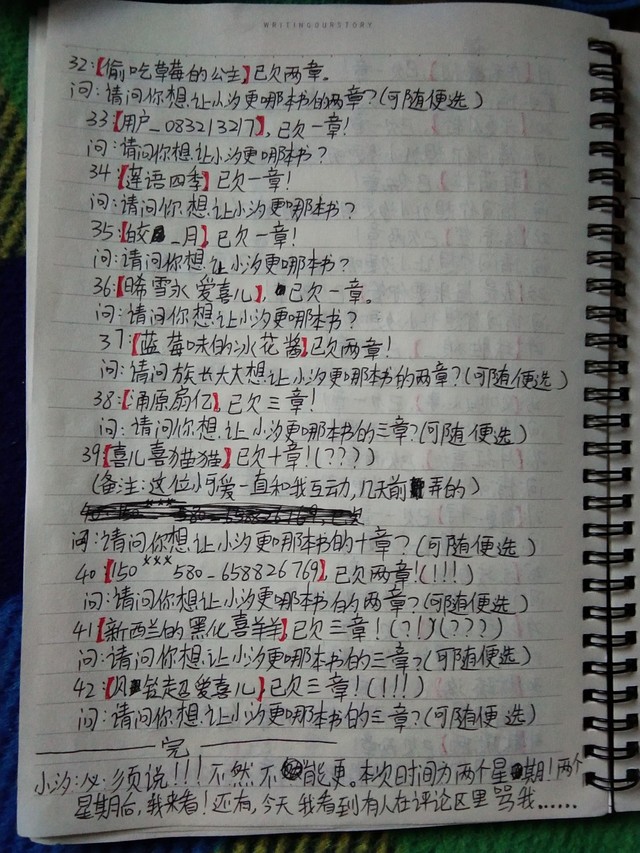 WRITINGOURSTORY
32:【偷吃草莓的公主】已欠两章。
问:请问你想让小汐更哪本书的两章?(可随便选)
33:【用户_083213217】,已欠一章!
问:请问你想让小汐更哪本书?
34:【莲语四季】已欠一章!
问:请问你想让小汐更哪本书?
35:【皎_月】,已欠一章!
问:请问你想让小汐更哪本书?
36:【晞雪永爱喜儿】,已欠一章。
问:请问你想让小汐更哪本书?
37:【蓝莓味的冰花酱】已欠两章!
问:请问族长大大想让小汐更哪本书的两章?(可随便选)
38:【涌原扇亿】,已欠三章!
问:请问你想让小汐更哪本书的三章?(可随便选)
39:【喜儿喜猫猫】已欠十章!(???)
(备注:这位小可爱一直和我互动,几天前弄的)
问:请问你想让小汐更哪本书的十章?(可随便选)
40:【150***580-658826769】,已欠两章!(!!!)
问:请问你想让小汐更哪本书的两章?(可随便选)
41【新西兰的黑化喜羊羊】已欠三章!(?!)(???)
问:请问你想让小汐更哪本书的三章?(可随便选)
42:【风铃超爱喜儿】已欠三章!(!!!)
问:请问你想让小汐更哪本书的三章?(可随便选)
完
小汐:必须说!!!不然不能更。本次时间为两个星期!两个
星期后,我来看!还有,今天我看到有人在评论区里骂我……